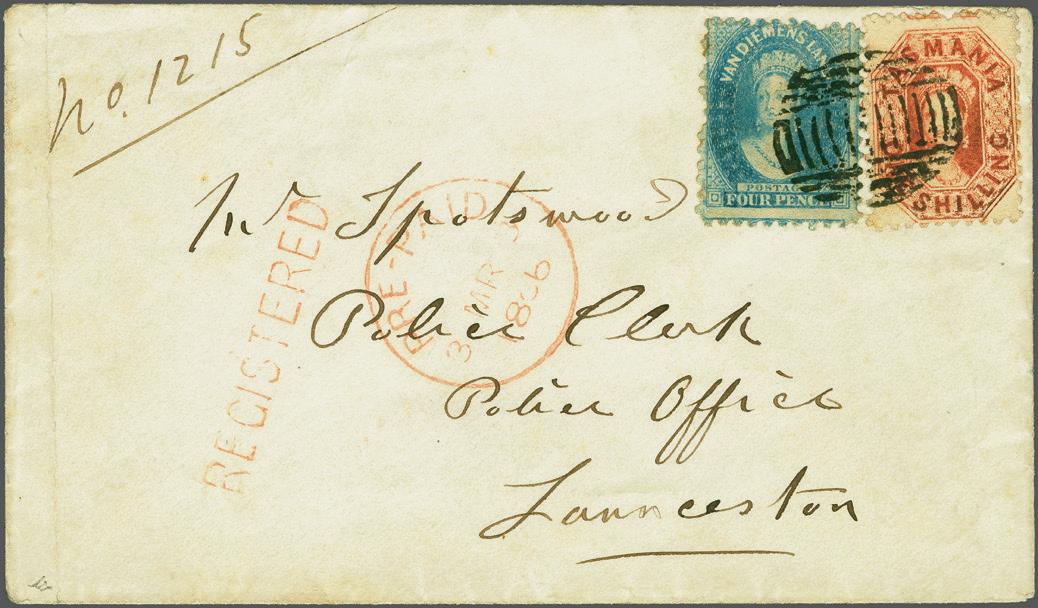 No. 1215
VAN DIEMENS LAN
POSTAGE
FOUR PENCE
TASMANIA
SHILLING
Mr Spotswood
Police Clerk
Police Office
Launceston
REGISTERED
PRE-PAID
3 MR
1866